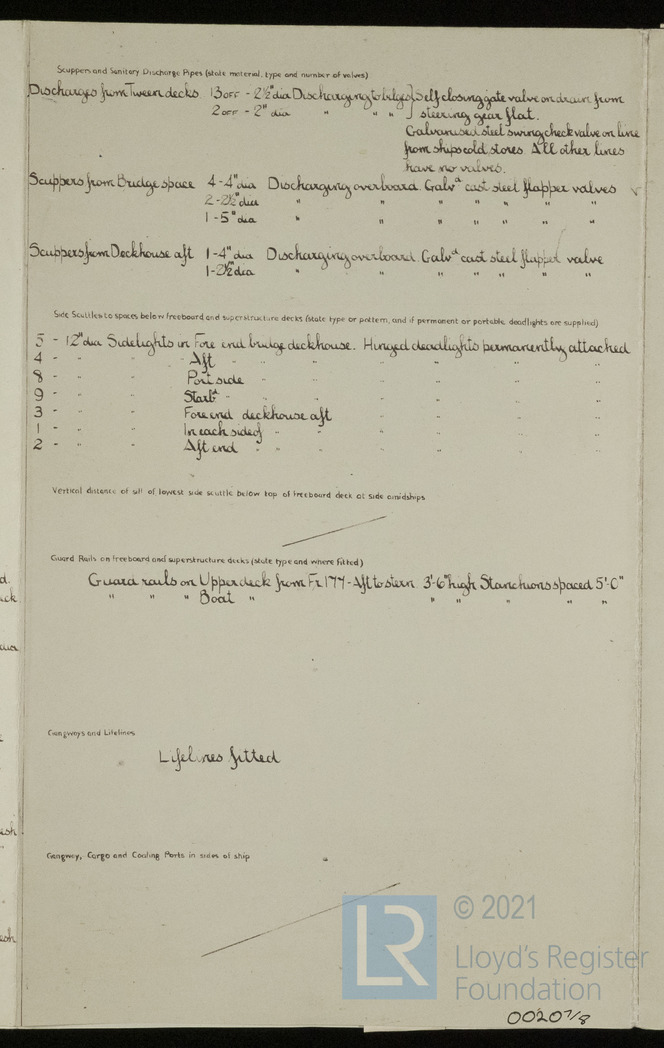 Scuppers and Sanitary Discharge Pipes (state material, type and number of valves)
Discharges from Tween decks. 13 OFF - 2½" dia Discharging to bilges } Self closing gate valve on drain from
2 OFF - 2" dia " " " } steering gear flat.
Galvanised steel swing check valve on line
from ships cold stores. All other lines
have no valves.
Scuppers from Bridge space 4 - 4" dia Discharging overboard. Galvd cast steel flapper valves ✓
2 - 2½" dia " " " " " " "
1 - 5" dia " " " " " " "
Scuppers from Deckhouse aft 1 - 4" dia Discharging overboard. Galvd cast steel flapper valve
1 - 2½" dia " " " " " " "
Side Scuttles to spaces below freeboard and superstructure decks (state type or pattern, and if permanent or portable deadlights are supplied)
5 - 12" dia Sidelights in Fore end bridge deckhouse. Hinged deadlights permanently attached
4 - " " Aft " " " " " "
8 - " " Port side " " " " " "
9 - " " Starbd " " " " " "
3 - " " Fore end deckhouse aft " " " "
1 - " " In each side of " " " " " "
2 - " " Aft end " " " " " "
Vertical distance of sill of lowest side scuttle below top of freeboard deck at side amidships
Guard Rails on freeboard and superstructure decks (state type and where fitted)
Guard rails on Upper deck from Fr 177 - Aft to stern. 3'-6" high Stanchions spaced 5'-0"
" " " Boat " " " " " "
Gangways and Lifelines
Lifelines fitted
Gangway, Cargo and Coaling Ports in sides of ship
LR
© 2021
Lloyd's Register
Foundation
0020 7/8